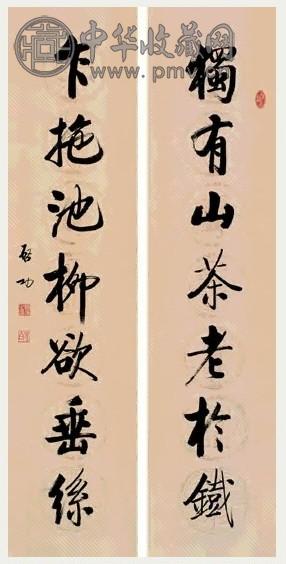 中华收藏网
www.pmv
獨有山茶老於鐵
乍拖池柳欲垂絲
啓功